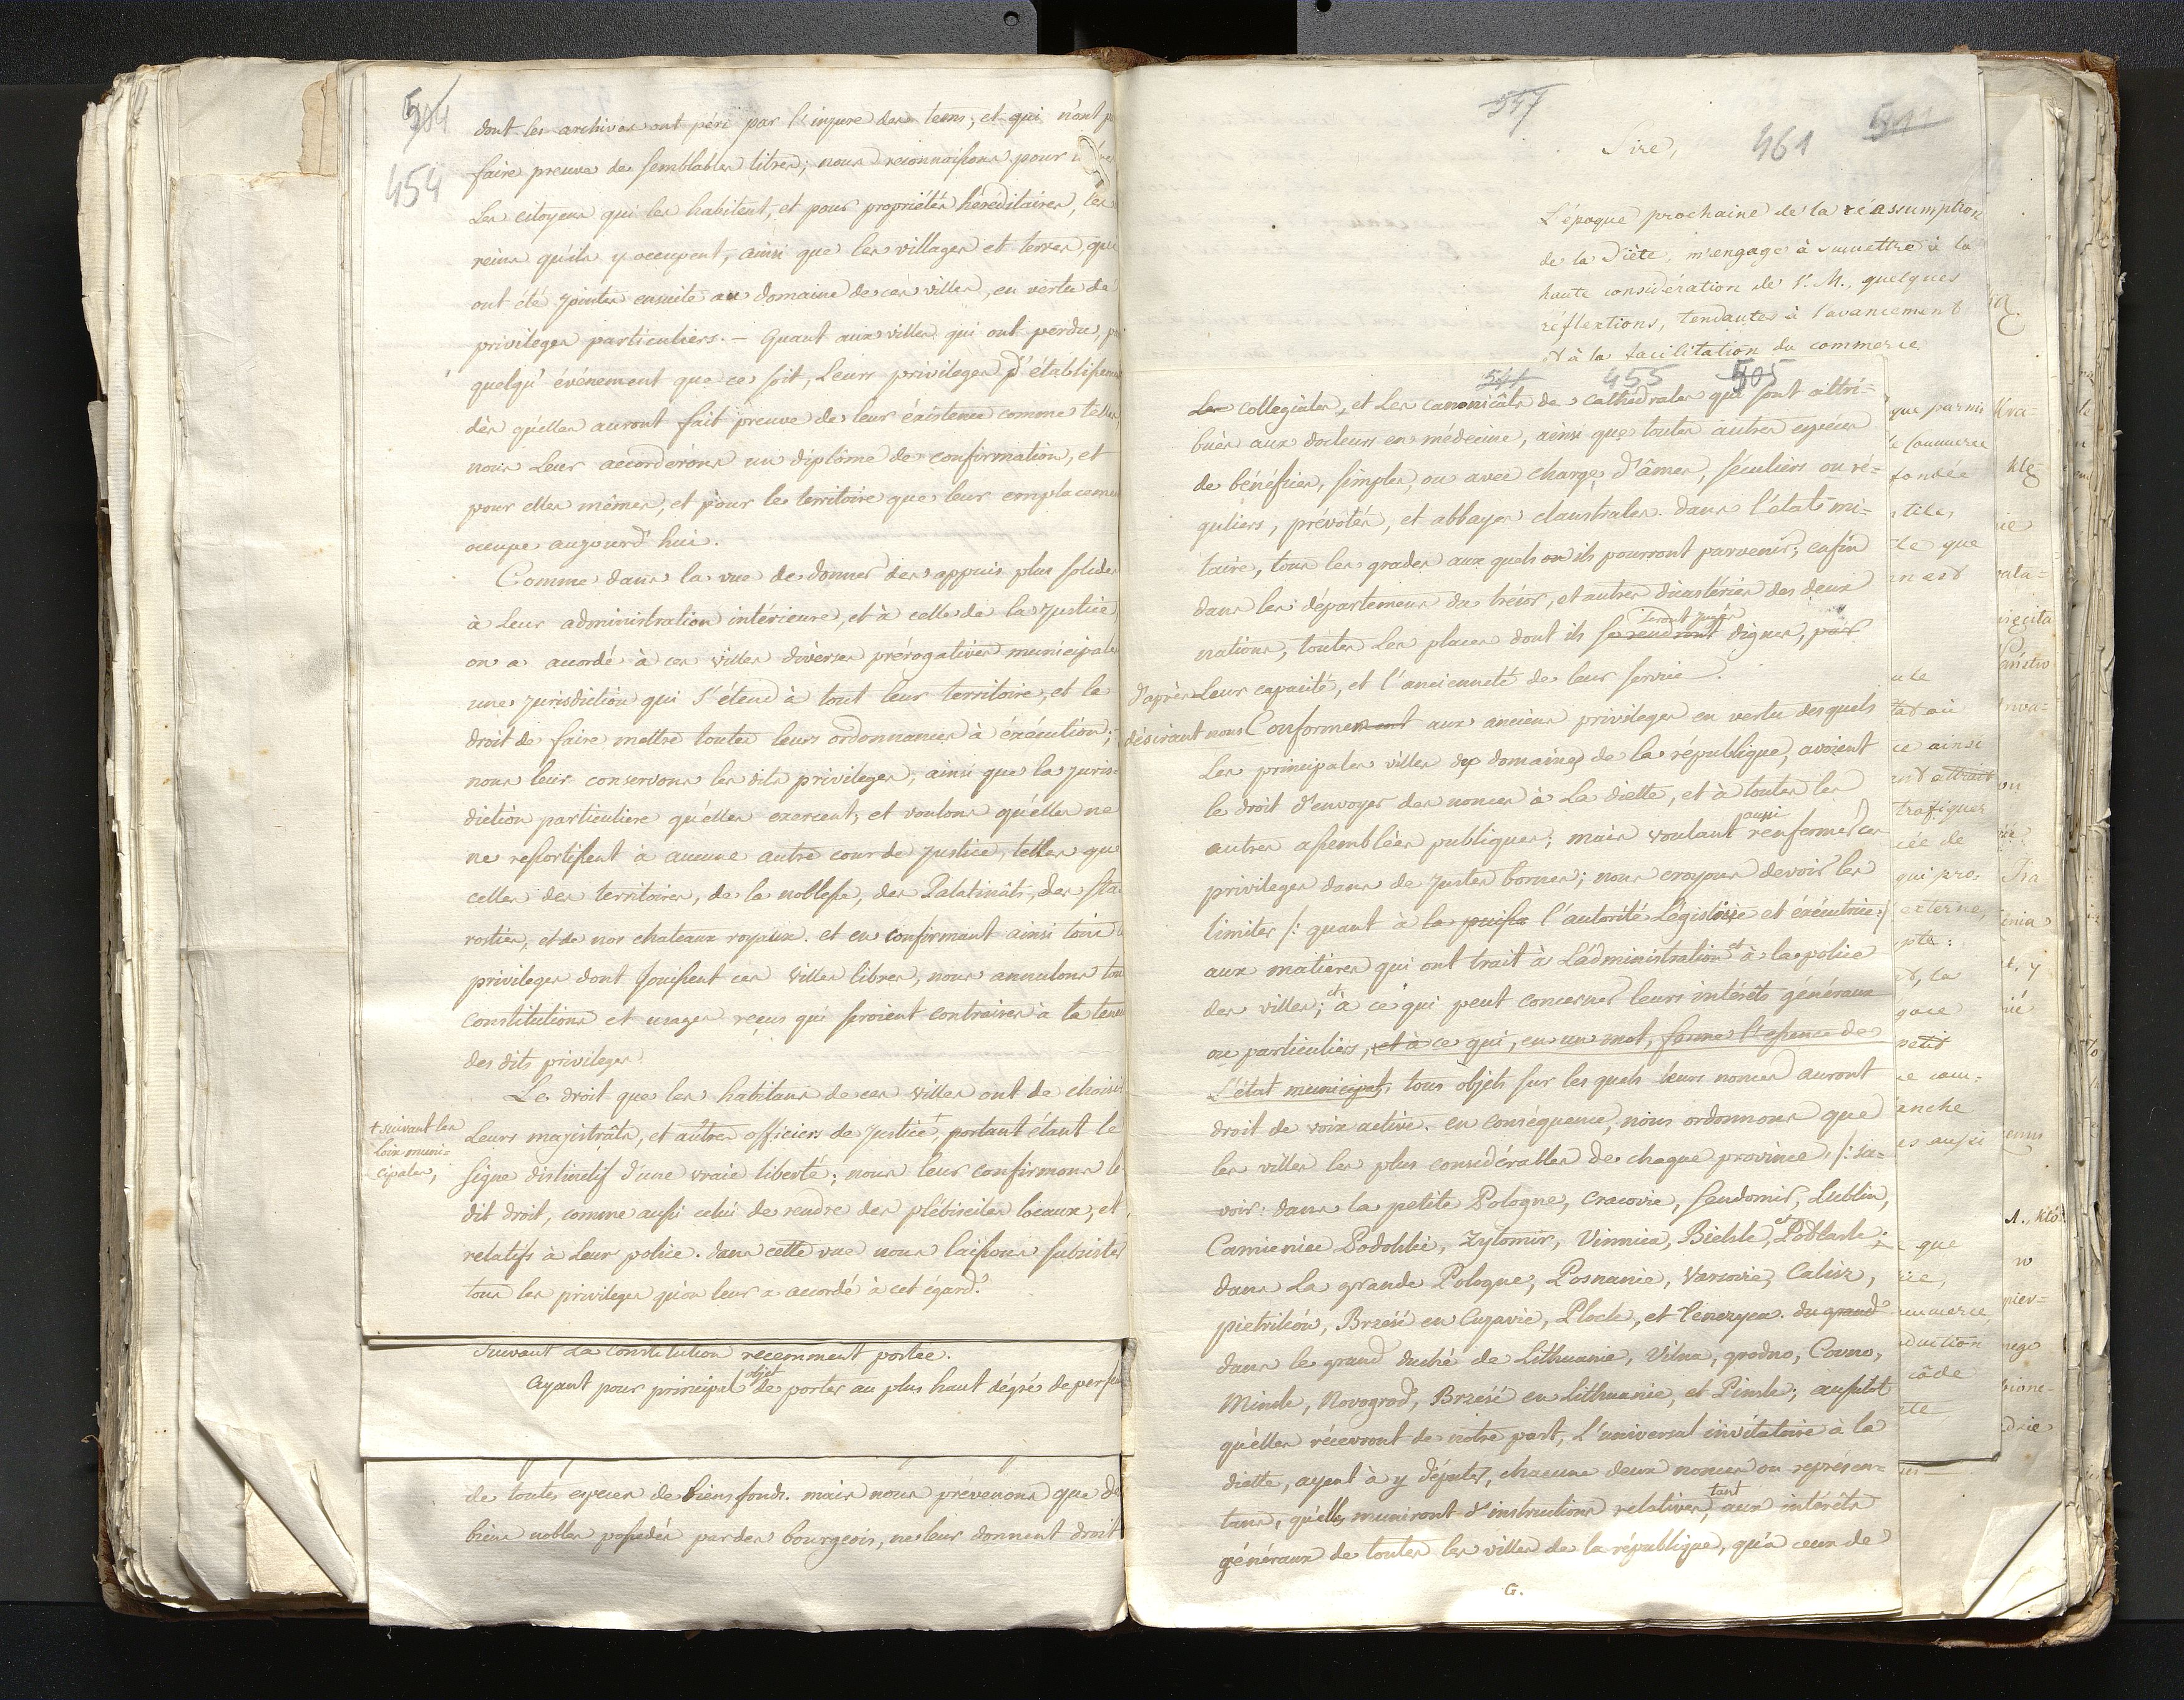 504
454
dont les archives ont péri par l'injure des tems, et qui n'ont
faire preuve de semblables titres; nous reconnoissons pour
Les citoyens qui les habitent, et pour propriétés héréditaires, les
reins qu'ils y occupent, ainsi que les villages et terres, que
ont été jointes ensuite au domaine de ces villes, en vertu de
privileges particuliers. – Quant aux villes qui ont perdu,
quelqu' événement que ce soit, Leurs privileges d'établissem
dès qu'elles auront fait preuve de leur éxistence comme telles,
nous Leur accorderons un diplôme de confirmation, et
pour elles mêmes, et pour le territoire que leur emplaceme
occupe aujourd'hui.
Comme dans la vue de donner des appuis plus solides
à Leur administration intérieure, et à celle de la justice
on a accordé à ces villes diverses prérogatives municipales
une jurisdiction qui s'étend à tout leur territoire, et le
droit de faire mettre toutes leurs ordonnances à éxécution;
nous leur conservons les dits privileges, ainsi que la juris-
diction particuliere qu'elles exercent; et voulons qu'elles ne
ne ressortissent à aucune autre cour de justice, telles que
celles des territoires, de la noblesse, des Palatinats, des Sta
rosties, et de nos chateaux royaux. et en confirmant ainsi tous
privileges dont jouissent ces villes libres, nous annulons tou
constitutions et usages recus qui seroient contraires à la teneu
des dits privileges.
Le droit que les habitans de ces villes ont de choisir
Leurs magistrâts, et autres officiers de justice, + portant étant le
+ suivant les
loix muni-
cipales,
signe distinctif d'une vraie liberté; nous leur confirmons le
dit droit, comme aussi celui de rendre des plébiscites locaux, et
relatifs à Leur police. dans cette vue nous laissons subsister
tous les privileges qu'on leur a accordé à cet égard.
suivant La Constitution recemment portée.
Ayant pour principal objet de porter au plus haut dégré de perfe
de toutes especes de biens fonds. mais nous prévenons que de
biens nobles possédés par des bourgeois, ne leur donnent droit
547
461
511
Sire,
L'époque prochaine de la réassumption
de la Diète, m'engage à sumettre à la
haute considération de V. M., quelques
réflextions, tendantes à l'avancement
et à la facilitation du commerce
541 455 505
Les collegiales, et Les canonicâts de cathédrales qui sont attri-
buès aux docteurs en médecine, ainsi que toutes autres espéces
de bénéfices, simples, ou avec charge d'âmes, séculiers ou ré-
guliers, prévotés, et abbayes claustrales. dans l'état mi-
taire, tous les grades aux quels on ils pourront parvenir; enfin
dans les départemens du trésor, et autres dicastéries des deux
nations, toutes Les places dont ils se rendront seront jugés dignes, par
d'après Leur capacité, et l'ancienneté de leur service.
désirant nous Conformement aux anciens privileges en vertu desquels
Les principales villes des domaines de la république, avoient
le droit d'envoyer des nonces à La diette, et à toutes les
autres assemblées publiques; mais voulant aussi renfermer ces
privileges dans de justes bornes; nous croyons devoir les
limiter /: quant à la puissa l'autorité Législative et éxécutrice :/
aux matieres qui ont trait à L'administration et à la police
des villes; et à ce qui peut concerner leurs intérêts généraux
ou particuliers, et à ce qui, en un mot, forme l'essence de
L'état municipal, tous objets sur les quels leurs nonces auront
droit de voix active. en conséquence, nous ordonnons que
les villes les plus considérables de chaque province, /: sa-
voir: dans la petite Pologne, Cracovie, Sendomir, Lublin,
Camieniec Podolski, Zytomir, Vinnica, Bielsk, et Podlask;
dans La grande Pologne, Posnanie, Varsovie, Calisz,
pietrików, Brześć en Cujavie, Plock, et Lenczyca. du grand
dans le grand duché de Lithuanie, Vilna, grodno, Covno,
Minsk, Novogrod, Brześć en Lithuanie, et Pinsk; aussitot
qu'elles récevront de notre part, L'universal invitatoire à la
diette, ayent à y députer, chacune deux nonces ou représen-
tans, qu'elles muniront d'instructions relatives, tant aux intérêts
généraux de toutes les villes de la république, qu'à ceux de
G.
que parmi
le Commerce
fondée
ce ainsi
trafiquer
qui pro-
externe,
et, la
petit
es aussi
que
côde